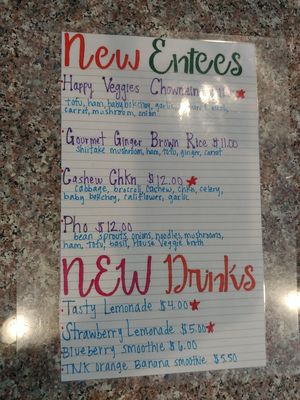 New Entees
Happy Veggies Chowndin
tofu, ham, baby bok choy, garlic
carrot, mushroom, onion
Gourmet Ginger Brown Rice $11.00
shiitake mushroom, ham, tofu, ginger, carrot
Cashew Chkn $12.00
cabbage, broccoli, cashew, chkn, celery,
baby bokchoy, califlower, garlic
Pho $12.00
bean sprouts, onions, noodles, mushrooms,
ham, Tofu, basil, House Veggie broth
NEW Drinks
Tasty Lemonade $4.00
Strawberry Lemonade $5.00
Blueberry smoothie $6.00
TNK orange Banana smoothie $5.50